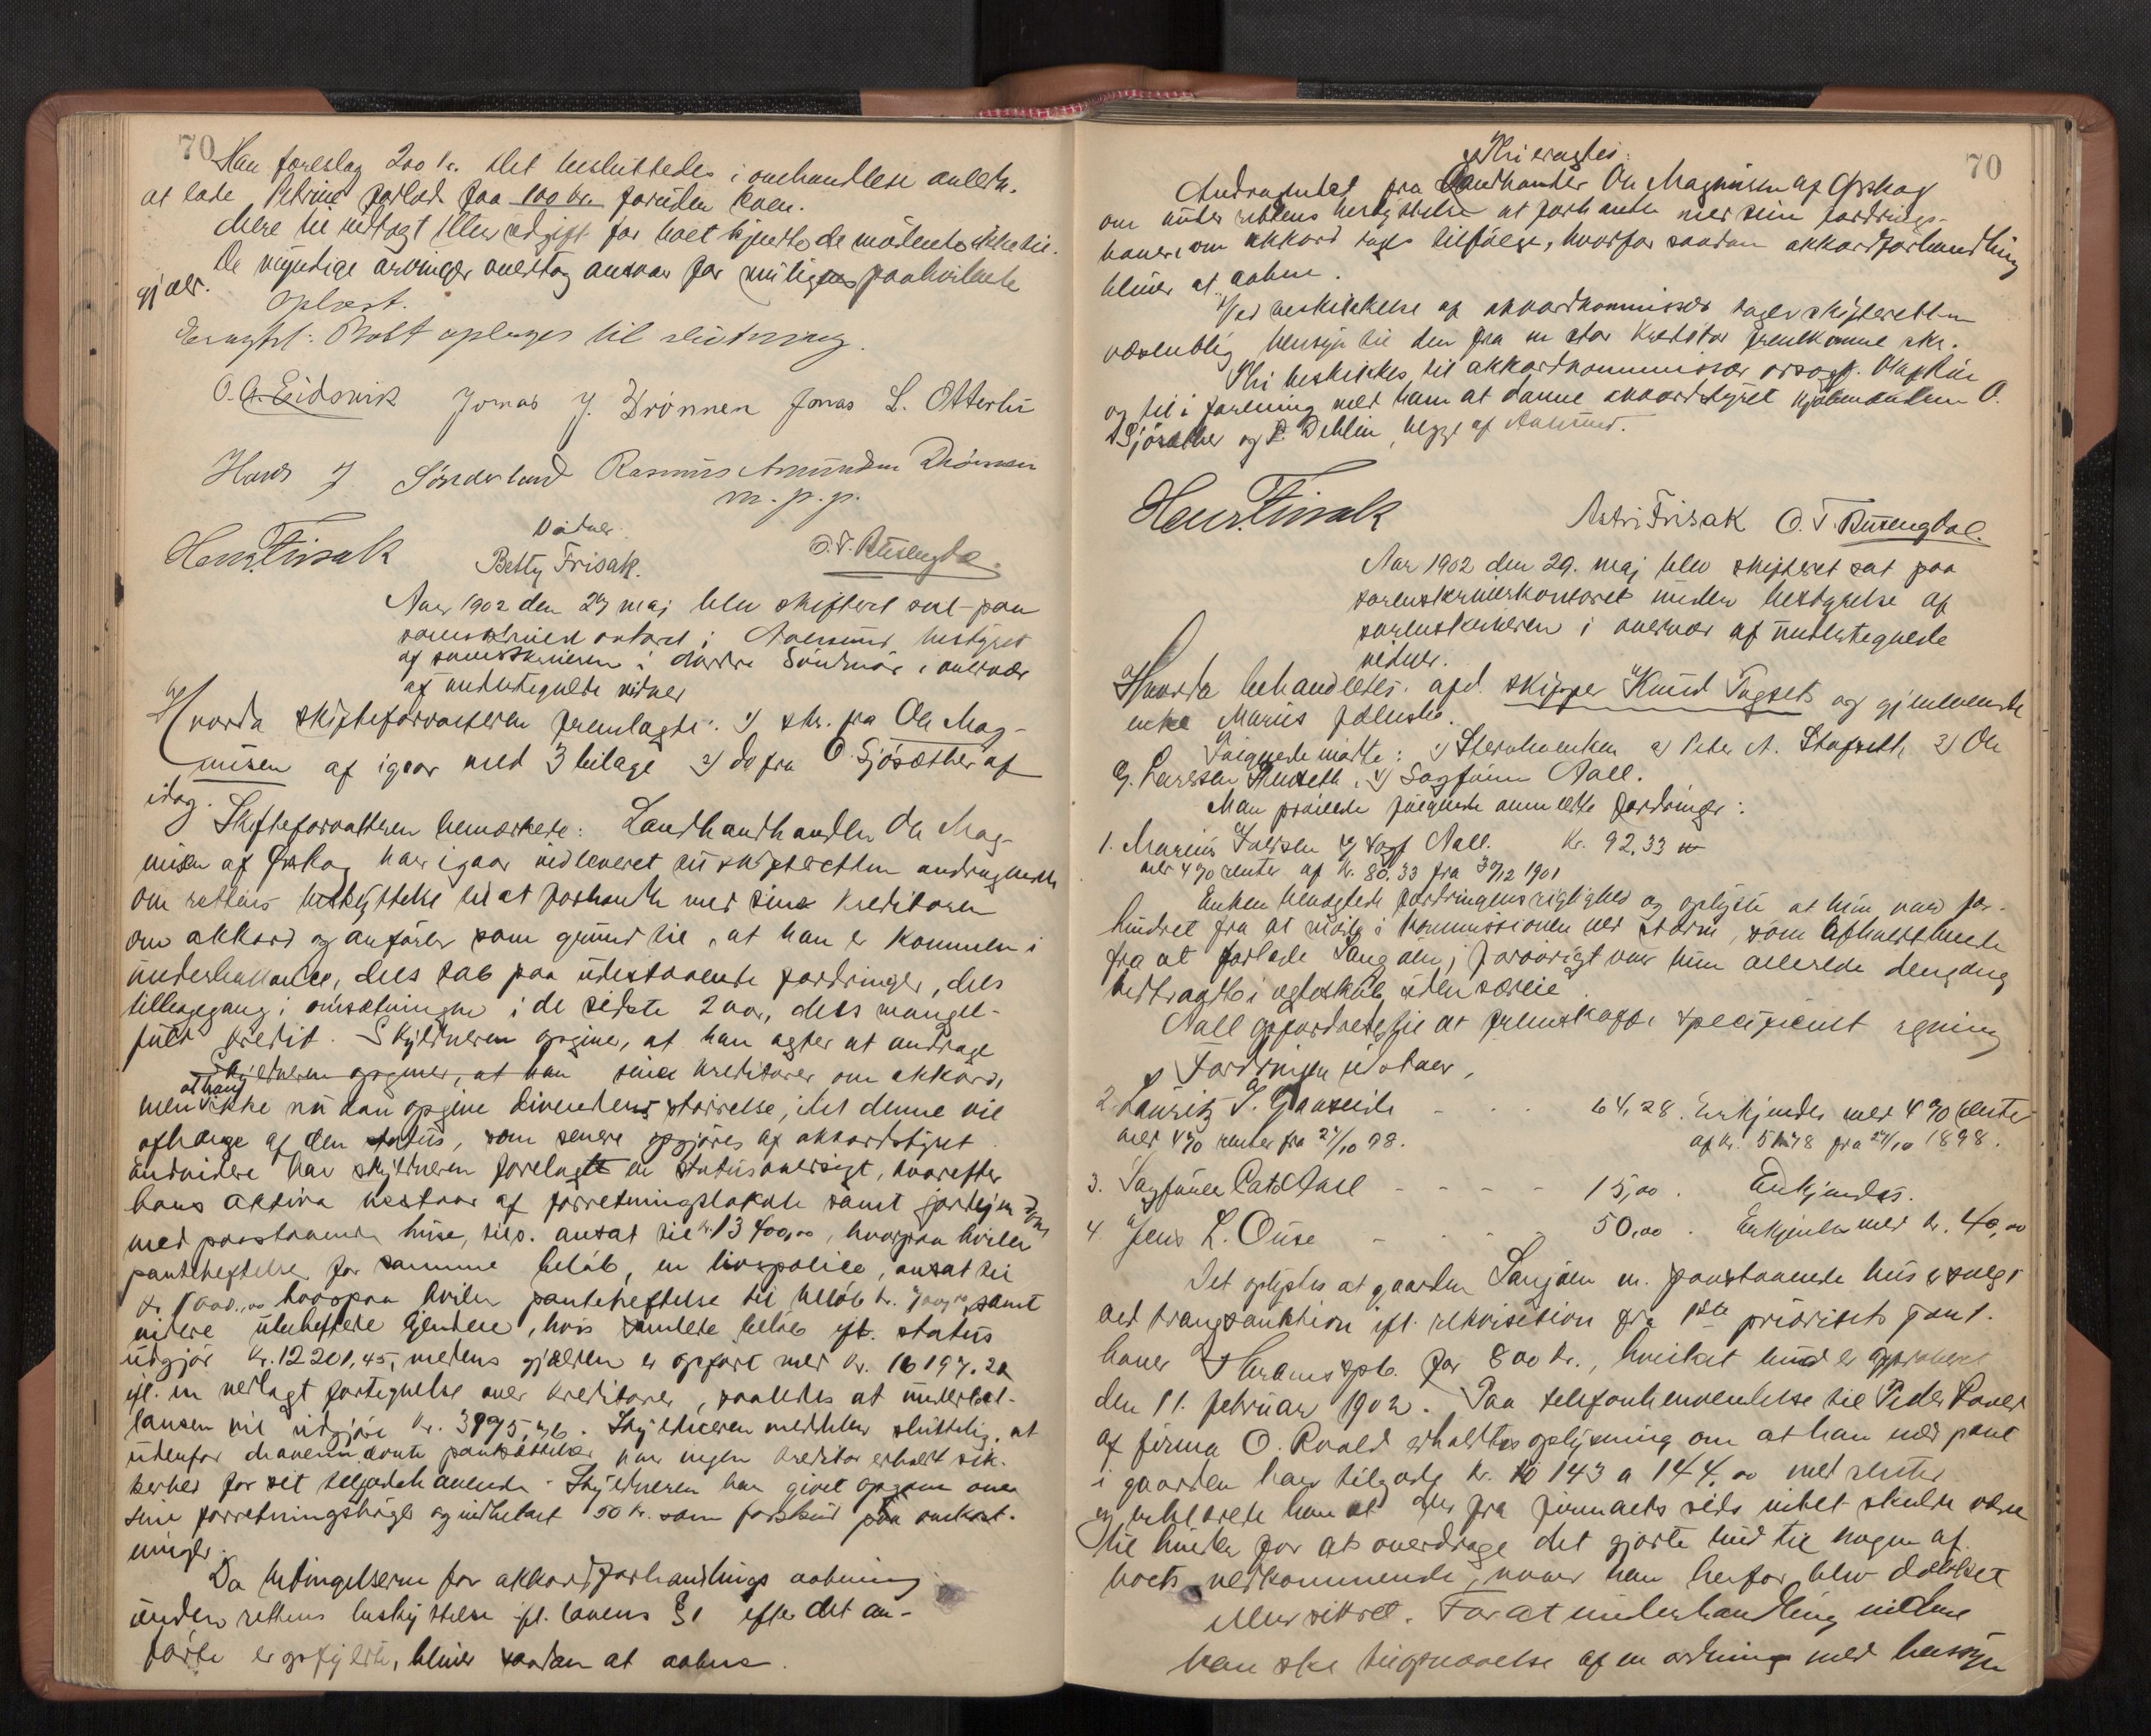 70
Han foreslog 200 kr. Det besluttedes i omhandlede
at lade Petrine Forlod faa 100 kr foruden koen.
Mere til indtægt eller udgift for boet kjendte de mødende ikke til.
De myndige arvinger overtog ansvar for muligens paahvilende
gjæld.
Oplæst.
Eragtet: Boet optages til slutning.
O. A. Eidsvik Jonas J. Drønnen Jonas L. Otterlei
Hans J. Sønderland Rasmus Amundsen Drønnen
m. p. p.
Vidner.
Henr. Frisak Betty Frisak. O. T. Rusengdal.
Aar 1902 den 27 maj blev skifteret sat paa
sorenskriverkontoret i Aalesund bestyret
af sorenskriveren i Nordre Søndmør i overvær
af undertegnede vidner
Hvorda skifteforvalteren fremlagte: 1) skr. fra Ole Mag-
nusen af igaar med 3 bilage 2) do fra O. Sjøsæther af
idag.
Skifteforvalteren bemærkede: Landhandler Ole Mag-
nusen af Ørskog har igaar indleveret til skifteretten andragende
om rettens beskyttelse til at forhandle med sine kreditorer
om akkord og anfører som grund til, at han er kommen i
underballance, dels tab paa udestaaende fordringer, dels
tilbagegang i omsætningen i de sidste 2 aar, dels mangel-
fuld kredit. Skyldneren opgiver, at han agter at andrage
Skyldneren opgiver, at han sine kreditorer om akkord,
at han
men ikke nu kan opgive dividendens størrelse, idet denne vil
afhænge af den status, som senere opgjøres af akkordstyret.
Endvidere har skyldneren forelagt en statusoversigt, hvorefter
hans aktiva bestaar af forretningslokale samt gardejendom
med paastaaende huse, tils. ansat til kr. 13400,00, hvorpaa hviler
panteheftelse for samme beløb, en livspolice, ansat til
kr. 1000,00 hvorpaa hviler panteheftelse til beløb kr. samt
videre ubeheftede eiendele, hvis samlede beløb ift. status
udgjør kr. 12201,45, medens gjælden er opført med kr. 16197.21
ift. en vedlagt fortegnelse over kreditorer, saaledes at underbal-
lansen vil udgjøre kr. 3995,76. Skyldneren meddeler sluttelig, at
udenfor de ovennævnte pantsættelser har ingen kreditor erholdt sik-
kerhed for sit tilgodehavende. Skyldneren har givet opgave over
sine forretningsbøger og indbetalt 50 kr. som forskud paa omkost-
ninger.
Da betingelserne for akkordforhandlings aabning
under rettens beskyttelse ift. lovens §1 efter det an-
førte er opfyldt, bliver saadan at aabne.
70
Thi eragtes:
Andragendet fra Landhandler Ole Magnusen af Ørskog
om under rettens beskyttelse at forhandle med sine fordrings-
havere om akkord tages tilfølge, hvorfor saadan akkordforhandling
bliver at aabne.
Ved beskikkelse af akkordkommissær tager skifteretten
væsentlig hensyn til den fra en stor kreditor fremkomne skr.
Thi beskikkes til akkordkommissær
og til i forening med ham at danne akkordstyret kjøbmændene O.
Sjøsæther og P. Dehlin, begge af Aalesund.
Henr. Frisak Astri Frisak O. T. Rusengdal.
Aar 1902 den 29. maj blev skifteret sat paa
sorenskriverkontoret under bestyrelse af
sorenskriveren i overvær af undertegnede
vidner.
Hvorda behandledes: afd. skipper Knud Tugsets og gjenlevende
enke Maries fællesbo.
Følgende mødte: 1) Stervboenken 2) Peter A. Stafseth, 3) Ole
G. Larssen 4) Sagfører Aall.
Man prøvede følgende anmeldte fordringer:
1. Marius Iversen v/ sagf Aall. Kr. 92.33
med 4% renter af kr. 80.33 fra 30/12 1901
Enken benægtede fordringens rigtighed og oplyste at hun var for-
hindret fra at møde i kommissionen ved storm, som afholdt hende
fra at forlade forøvrigt var hun allerede dengang
indtraadt i egteskab uden særeie.
Aall opfordredes til at fremskaffe specificeret regning
Fordringen udstaar.
2. Lauritz S. 64,28. Erkjendes med 4% rente
med 4% renter fra 24/10 98. af kr. fra 24/10 1898.
3. Sagfører Cato Aall 15,00. Erkjendes.
4. Jens L. Ouse 50,00. Erkjendes med kr. 40,00
Det oplystes at gaarden m. paastaaende hus er solgt
ved tvangsauktion ift. rekvisition fra 1ste prioritets pant-
haver Harams spb. for 800 kr., hvilket bud er approberet
den 11. februar 1902. Paa telefonhenvendelse til Peder
af firma O. Roald erholdtes oplysning om at han med pant
i gaarden har tilgode kr. 143 a 144,00 med renter
og erklærede han at der fra firmaets side intet skulde være
til hinder for at overdrage det gjorte bud til nogen af
boets vedkommende, naar han herfor blev dækket
eller sikret. For at underhandling
kan ske til opnaaelse af en ordning med hensyn